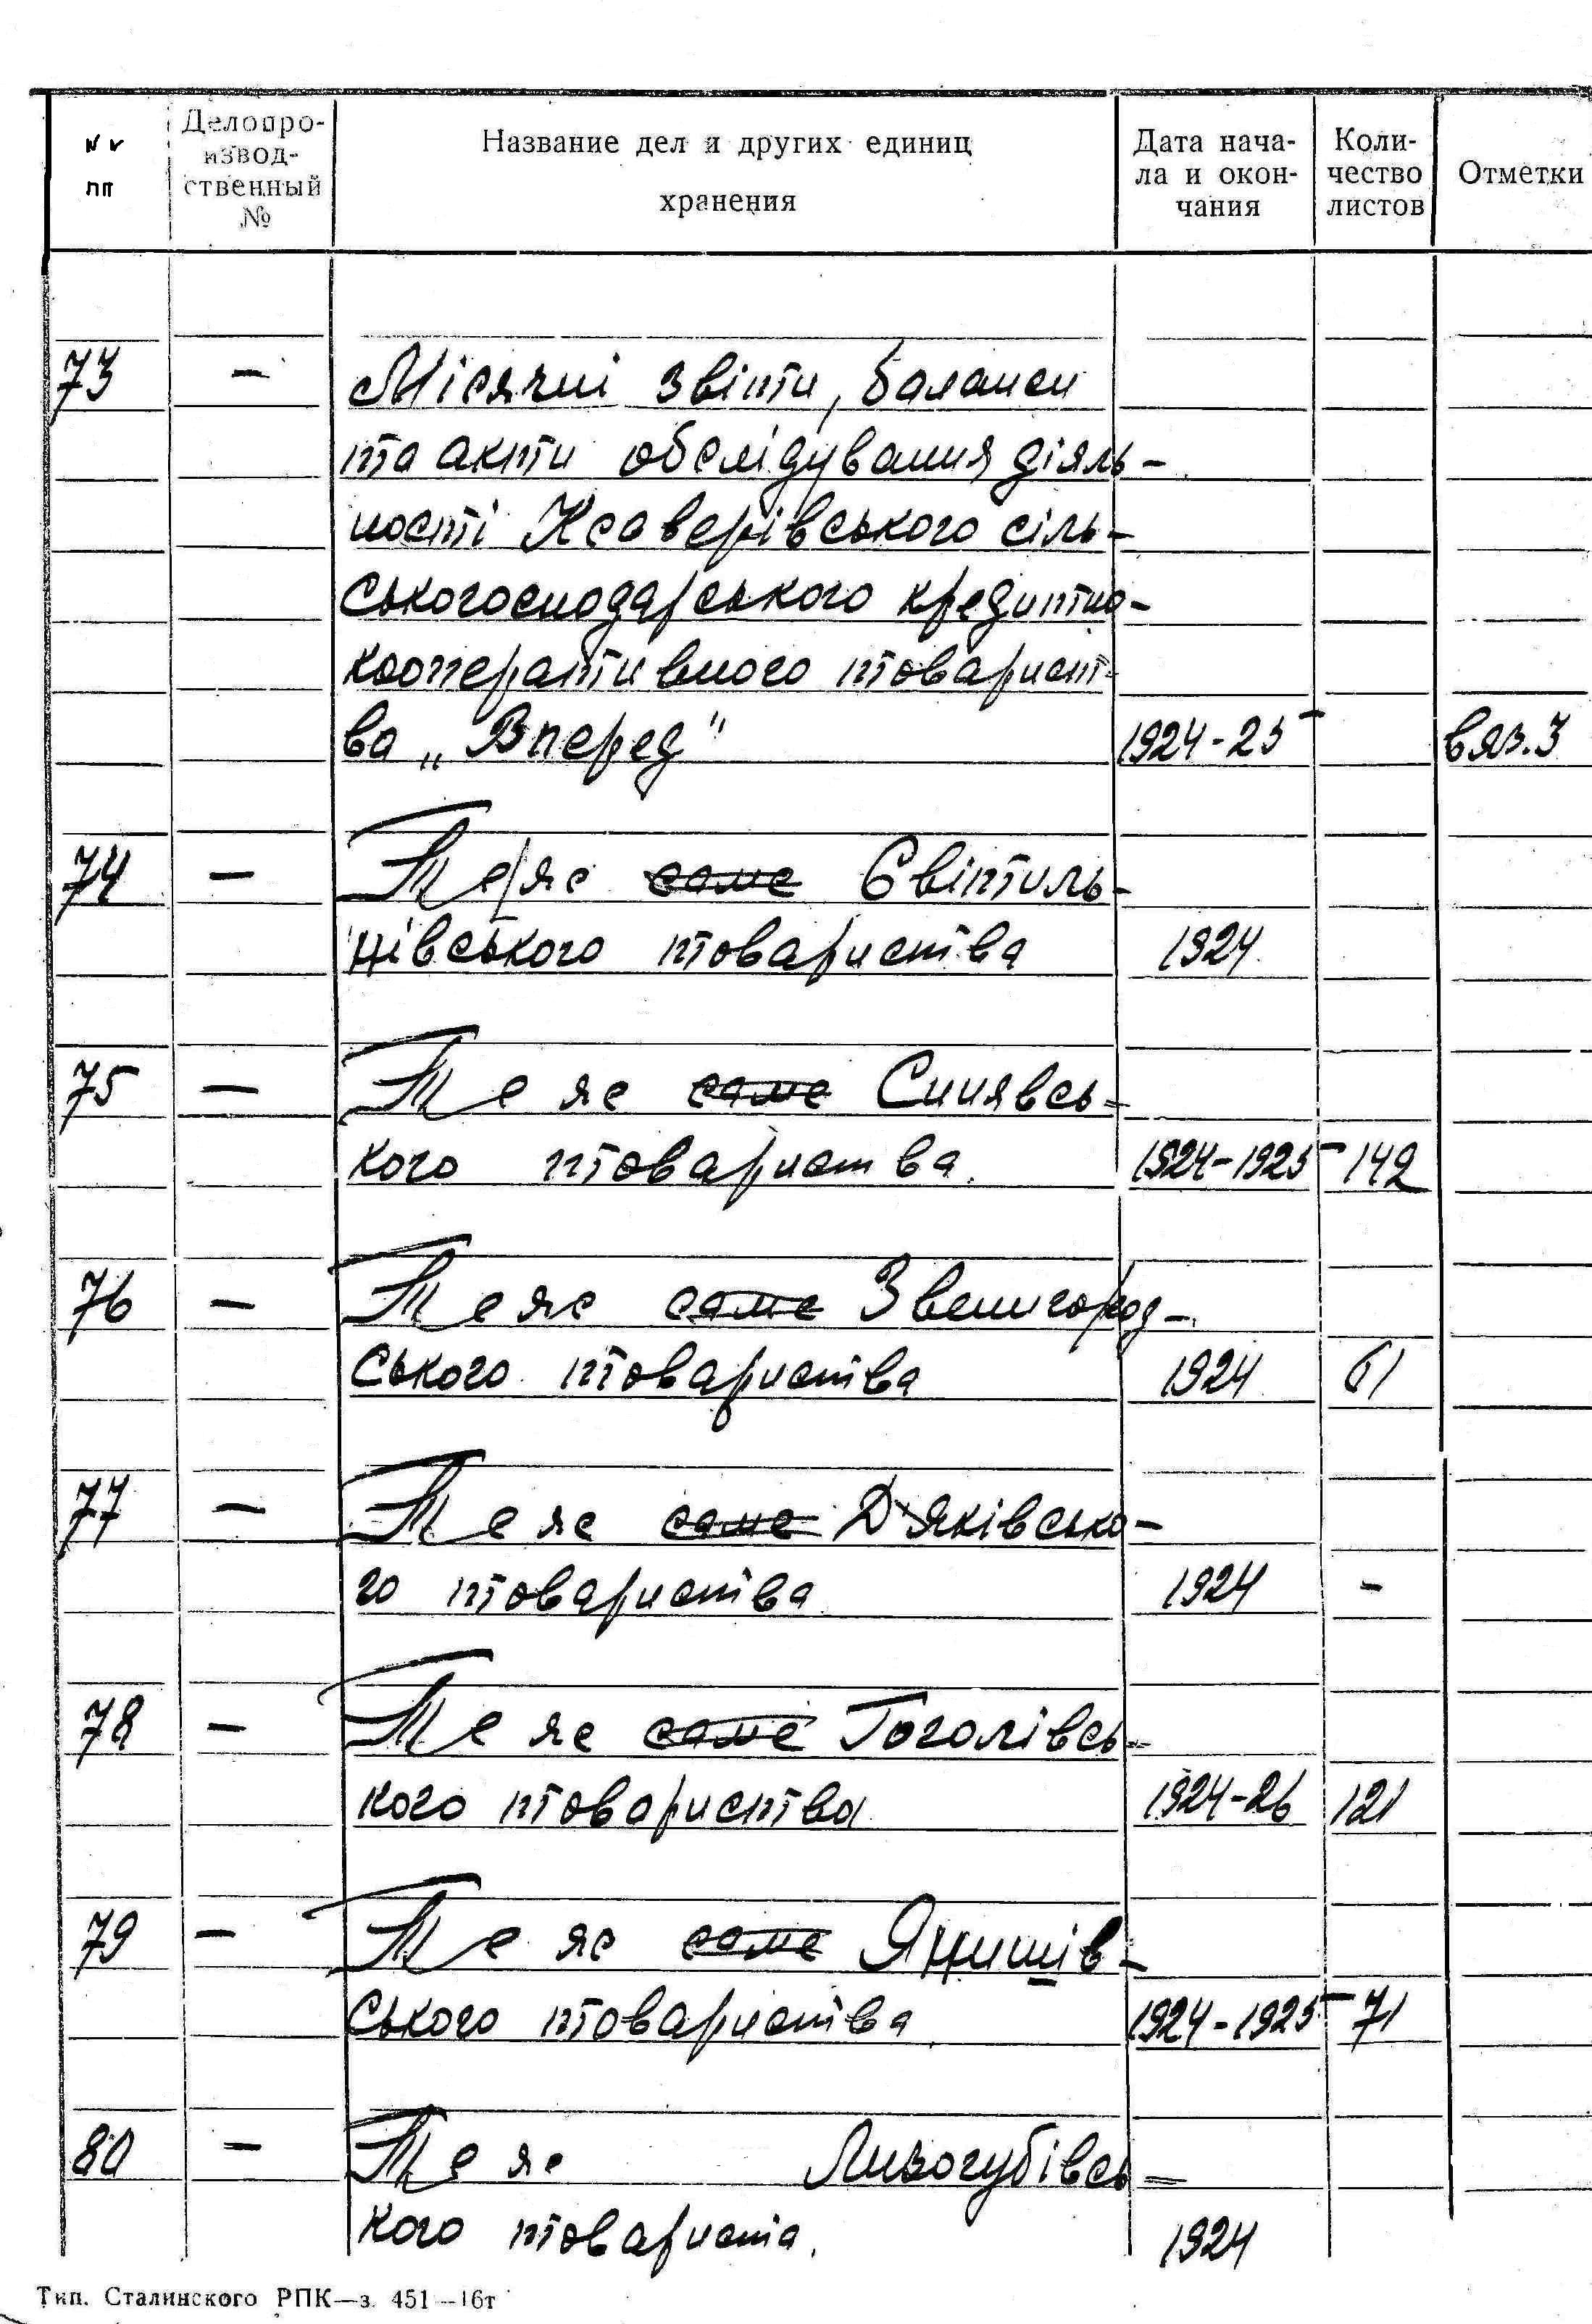 №№ пп
Делопроизводственный №
Название дел и других единиц хранения
Дата начала и окончания
Количество листов
Отметки
73 — Місячні звіти, баланси
та акти обслідування діяль-
ності Ксаверівського сіль-
ськогосподарського кредитно-
кооперативного товарист-
ва „Вперед" 1924-25 вяз.3
74 — Те же саме Євітиль-
нівського товариства 1924
75 — Те же саме Синявсь-
кого товариства. 1924-1925 142
76 — Те же саме Звенигород-
ського товариства 1924 61
77 — Те же саме Д'яківсько-
го товариства 1924 -
78 — Те же саме Гоголівсь-
кого товариства 1924-26 121
79 — Те же саме Янишів-
ського товариства 1924-1925 71
80 — Те же Лизогубівсь-
кого товариста. 1924
Тип. Сталинского РПК—з. 451—16т